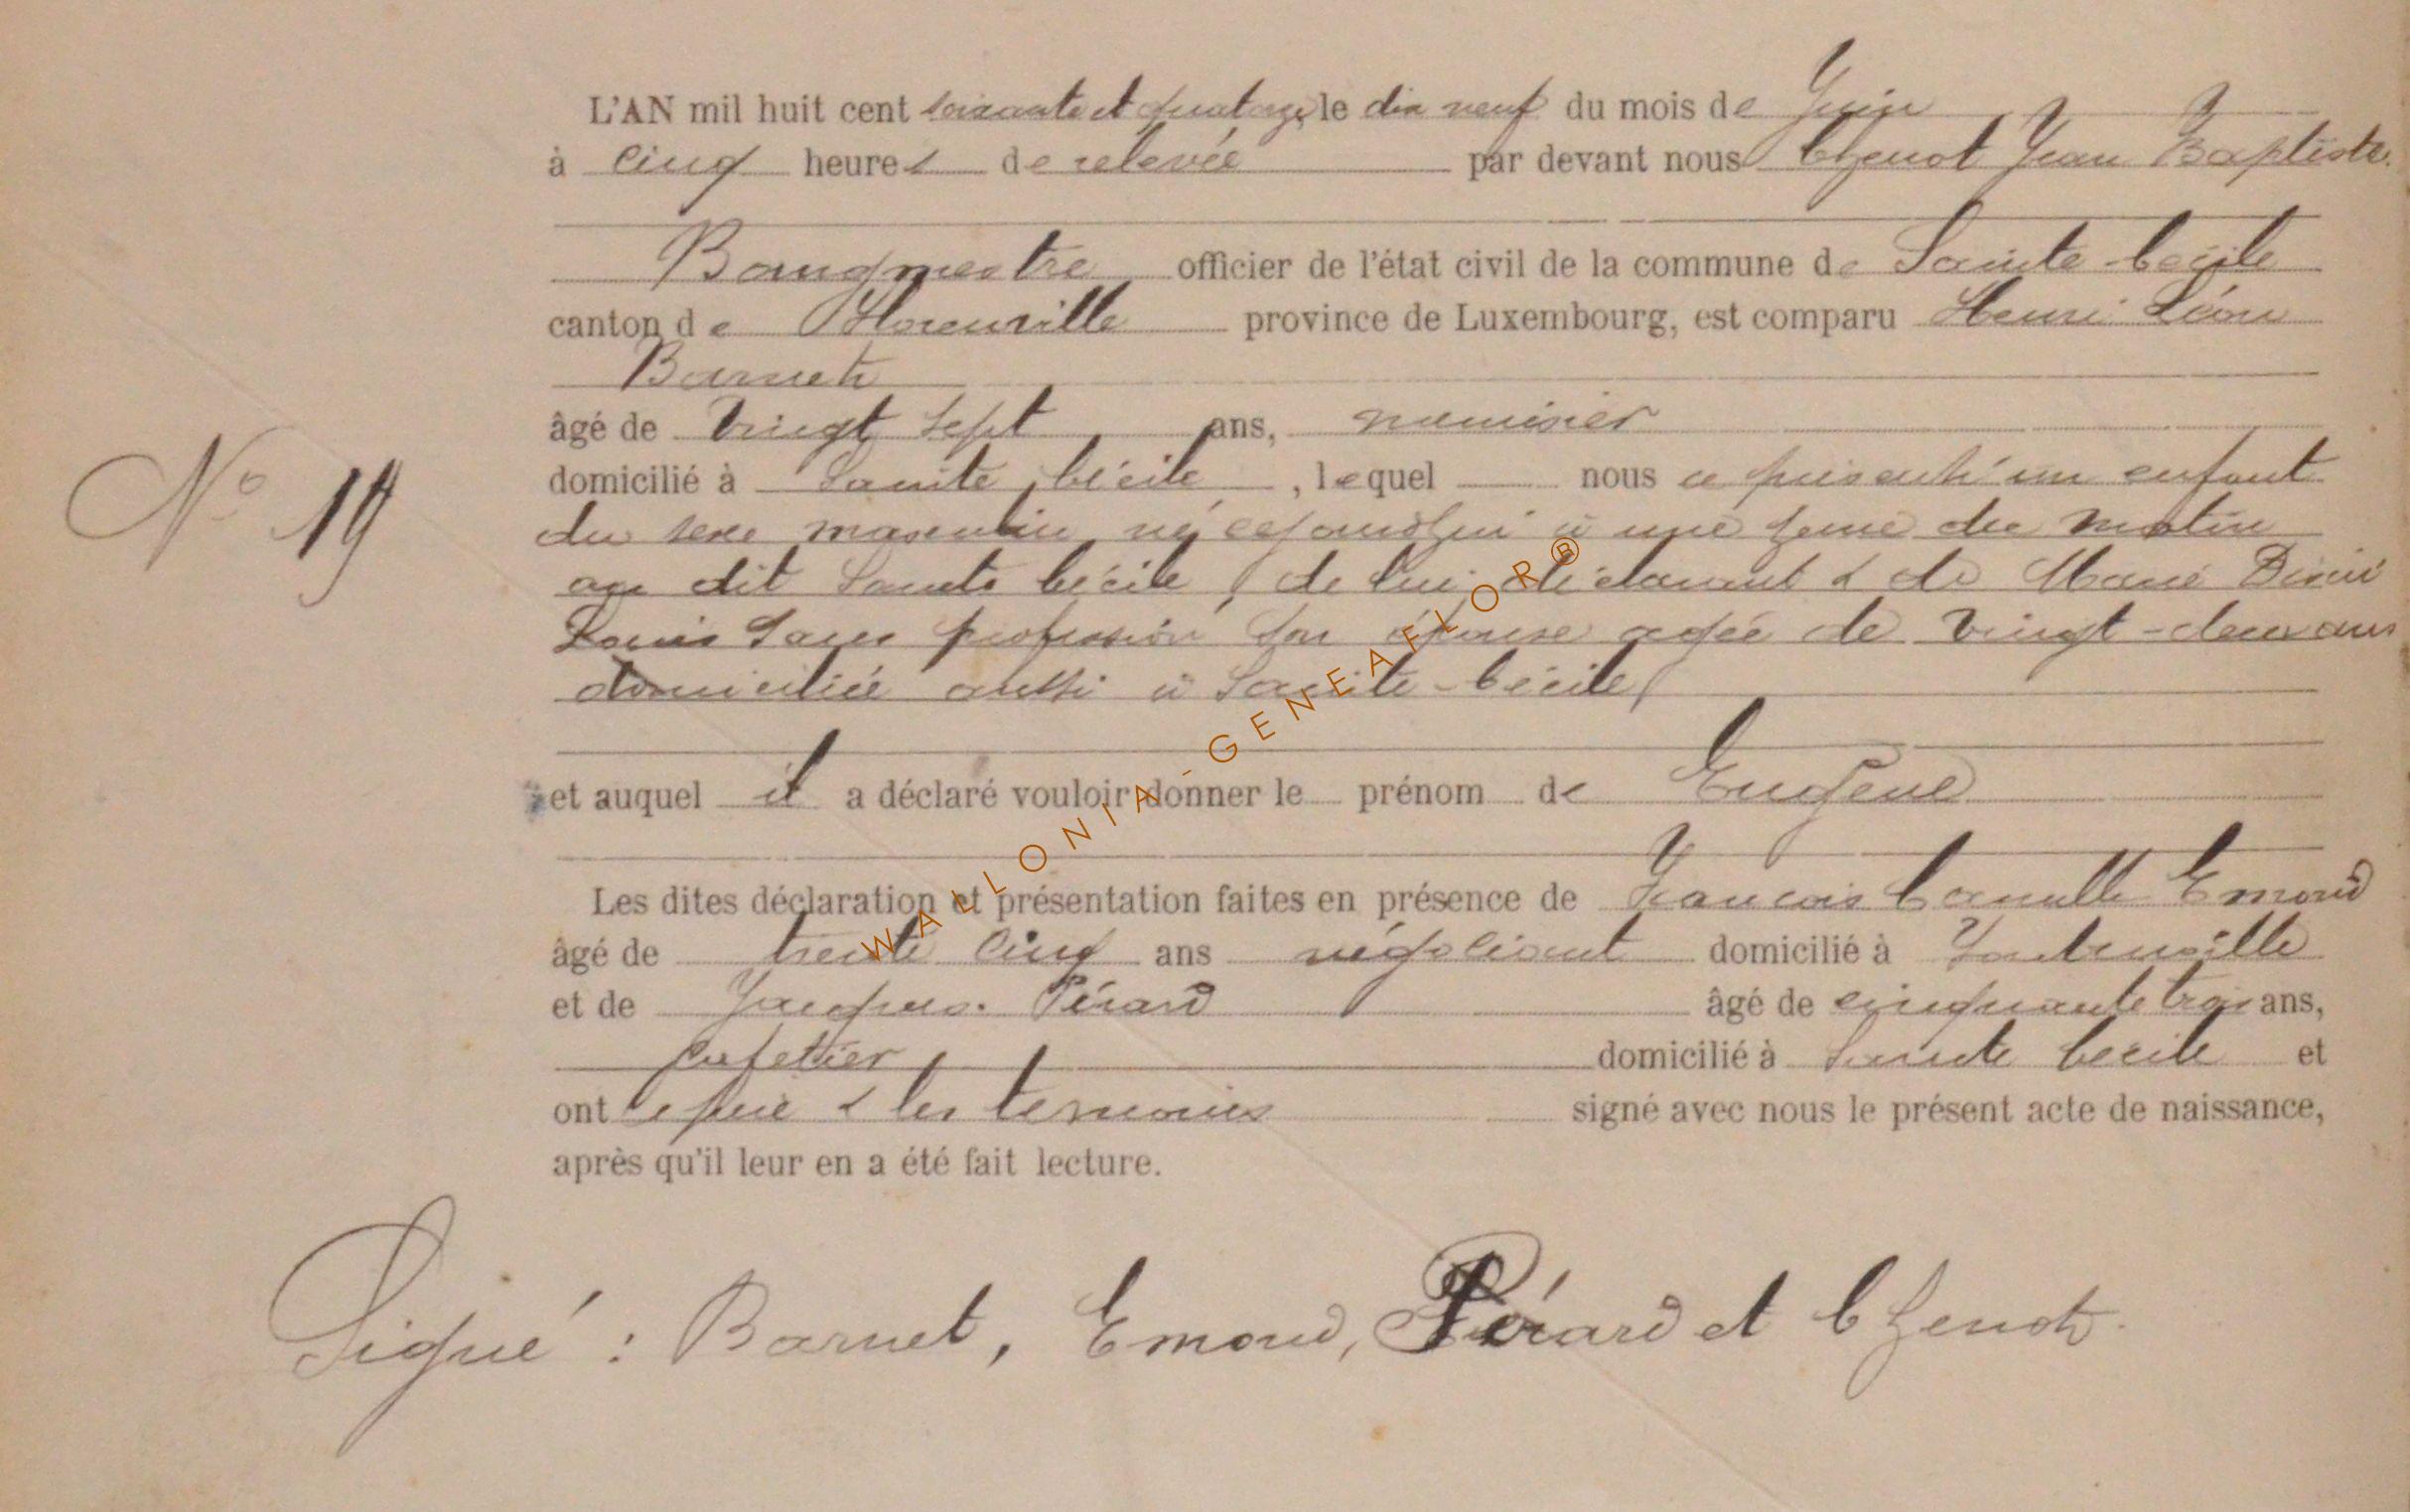 L'AN mil huit cent soixante et quatorze, le dix neuf du mois de Juin
à cinq heures de relevée par devant nous Chenot Jean Baptiste
Bourgmestre officier de l'état civil de la commune de Sainte-Cécile
canton de Florenville province de Luxembourg, est comparu Henri Léon
Barnet
âgé de Vingt Sept ans, menuisier
domicilié à Sainte Cécile, lequel nous a présenté un enfant
N° 19
du sexe masculin né cejourd'hui à une heure du matin
au dit Sainte Cécile, de lui déclarant & de Marie
Louis sans profession son épouse agée de Vingt-deux ans
domiciliée aussi à Sainte-Cécile,
et auquel il a déclaré vouloir donner le prénom de Eugène
Les dites déclaration et présentation faites en présence de François Camille Emond
âgé de trente cinq ans négociant domicilié à Fontenoille
et de Jacques Pérard âgé de cinquante trois ans,
cafetier domicilié à Sainte Cécile et
ont le père & les témoins signé avec nous le présent acte de naissance,
après qu'il leur en a été fait lecture.
Signé : Barnet, Emond, Pérard et Chenot.
WALLONIA-GENEAFLOR®